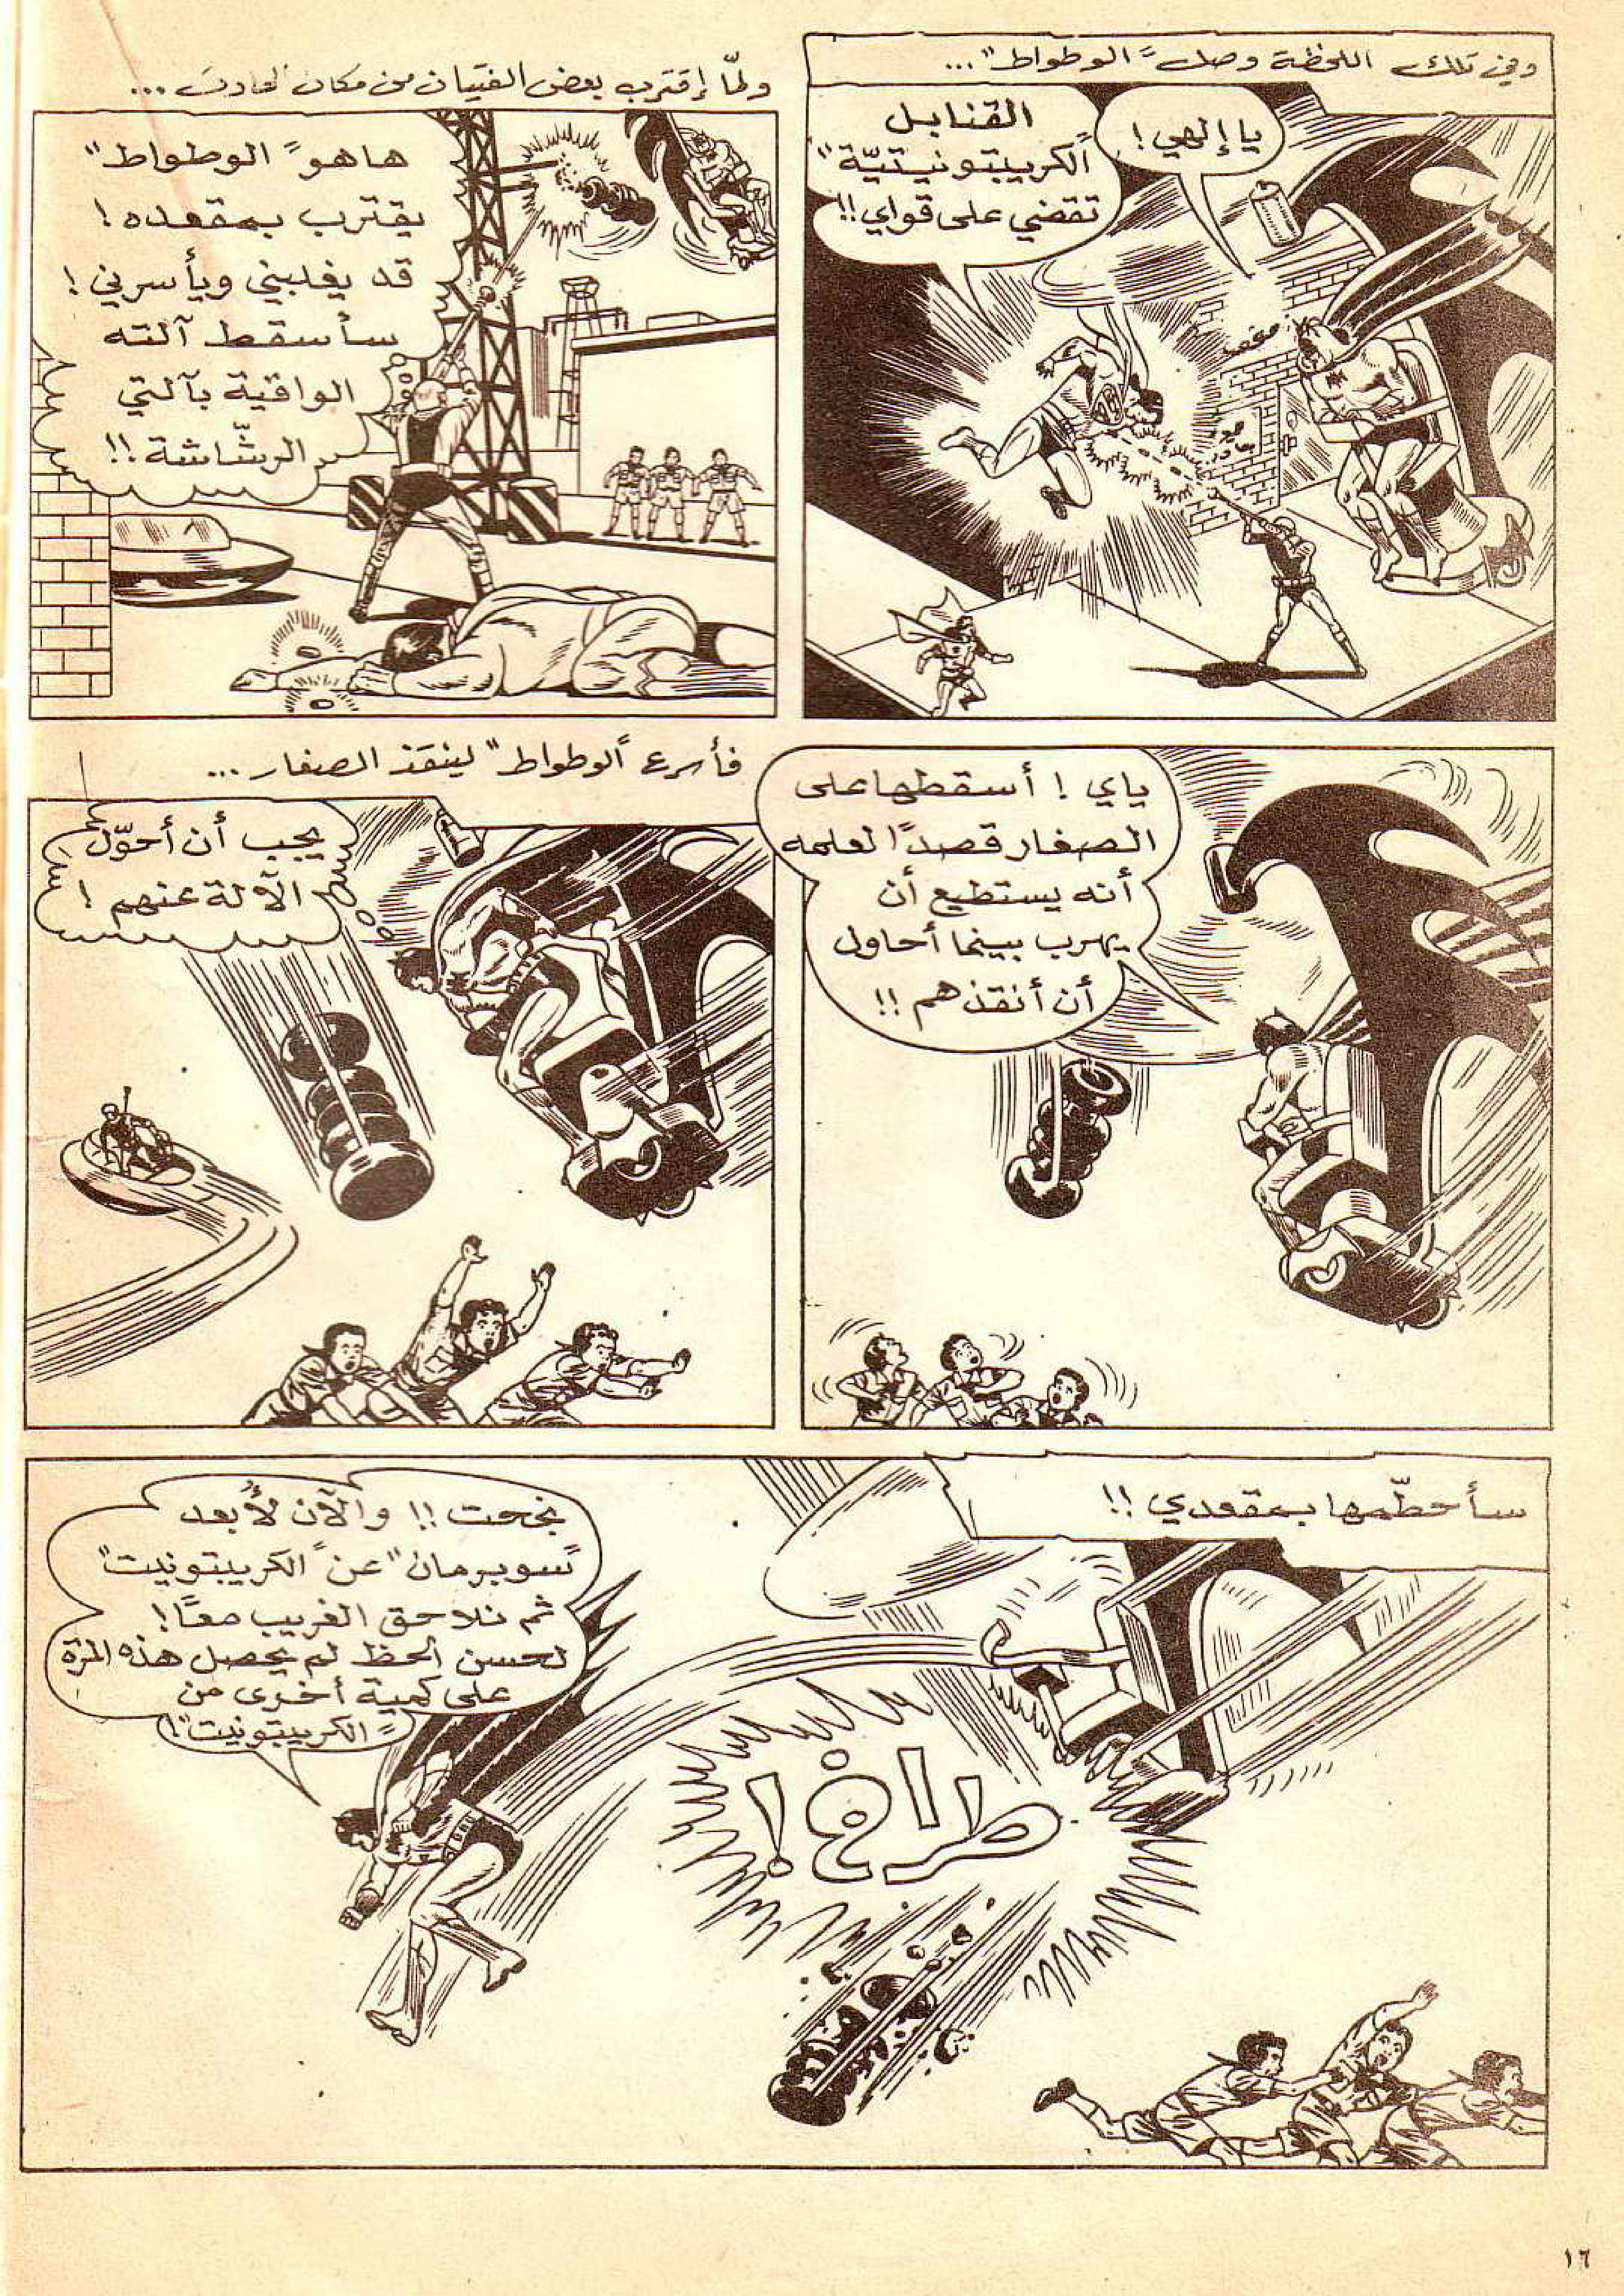 وفي تلك اللحظة وصل "الوطواط"...
يا إلهي!
القنابل
"الكريبتونيتيّة"
تقضي على قواي!!
ولمّا إقترب بعض الفتيان من مكان الحادث...
ها هو "الوطواط"
يقترب بمقعده!
قد يغلبني ويأسرني!
سأسقط آلته
الواقية بآلتي
الرشّاشة!!
ياي! أسقطها على
الصغار قصداً لعلمه
أنه يستطيع أن
يهرب بينما أحاول
أن أنقذهم!!
فأسرع "الوطواط" لينقذ الصغار...
يجب أن أحوّل
الآلة عنهم!
سأحطّمها بمقعدي!!
نجحت!! والآن لأُبعد
"سوبرمان" عن "الكريبتونيت"
ثم نلاحق الغريب معاً!
لحسن الحظ لم يحصل هذه المرّة
على كمية أخرى من
"الكريبتونيت"!
طراخ!
١٦